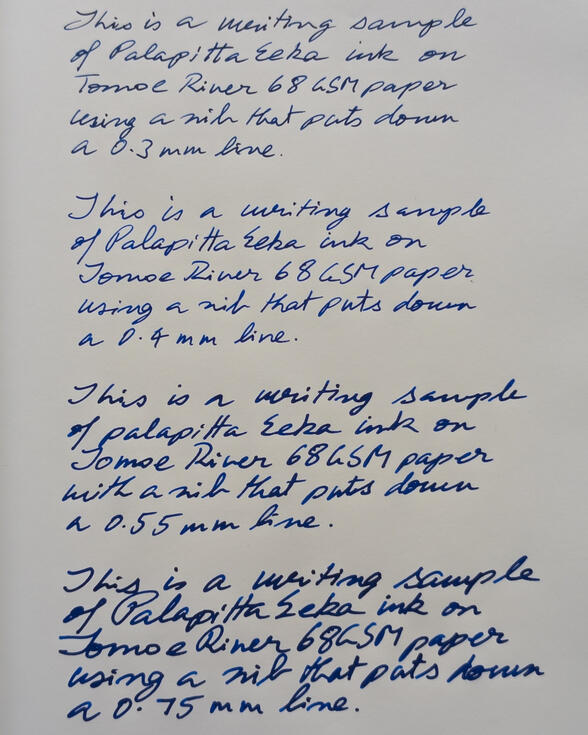 This is a writing sample
of Palapitta Eeka ink on
Tomoe River 68 GSM paper
using a nib that puts down
a 0.3 mm line.
This is a writing sample
of Palapitta Eeka ink on
Tomoe River 68 GSM paper
using a nib that puts down
a 0.4 mm line.
This is a writing sample
of palapitta Eeka ink on
Tomoe River 68 GSM paper
with a nib that puts down
a 0.55 mm line.
This is a writing sample
of Palapitta Eeka ink on
Tomoe River 68 GSM paper
using a nib that puts down
a 0.75 mm line.